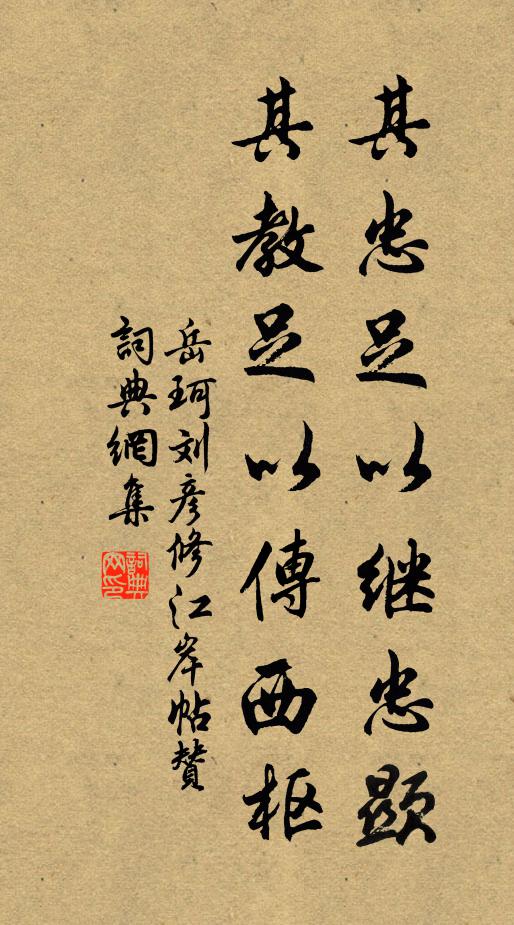 其忠足以继忠顯
其教足以傳西枢
岳珂刘彦修江岸帖贊
詞典網集
詞典
网印